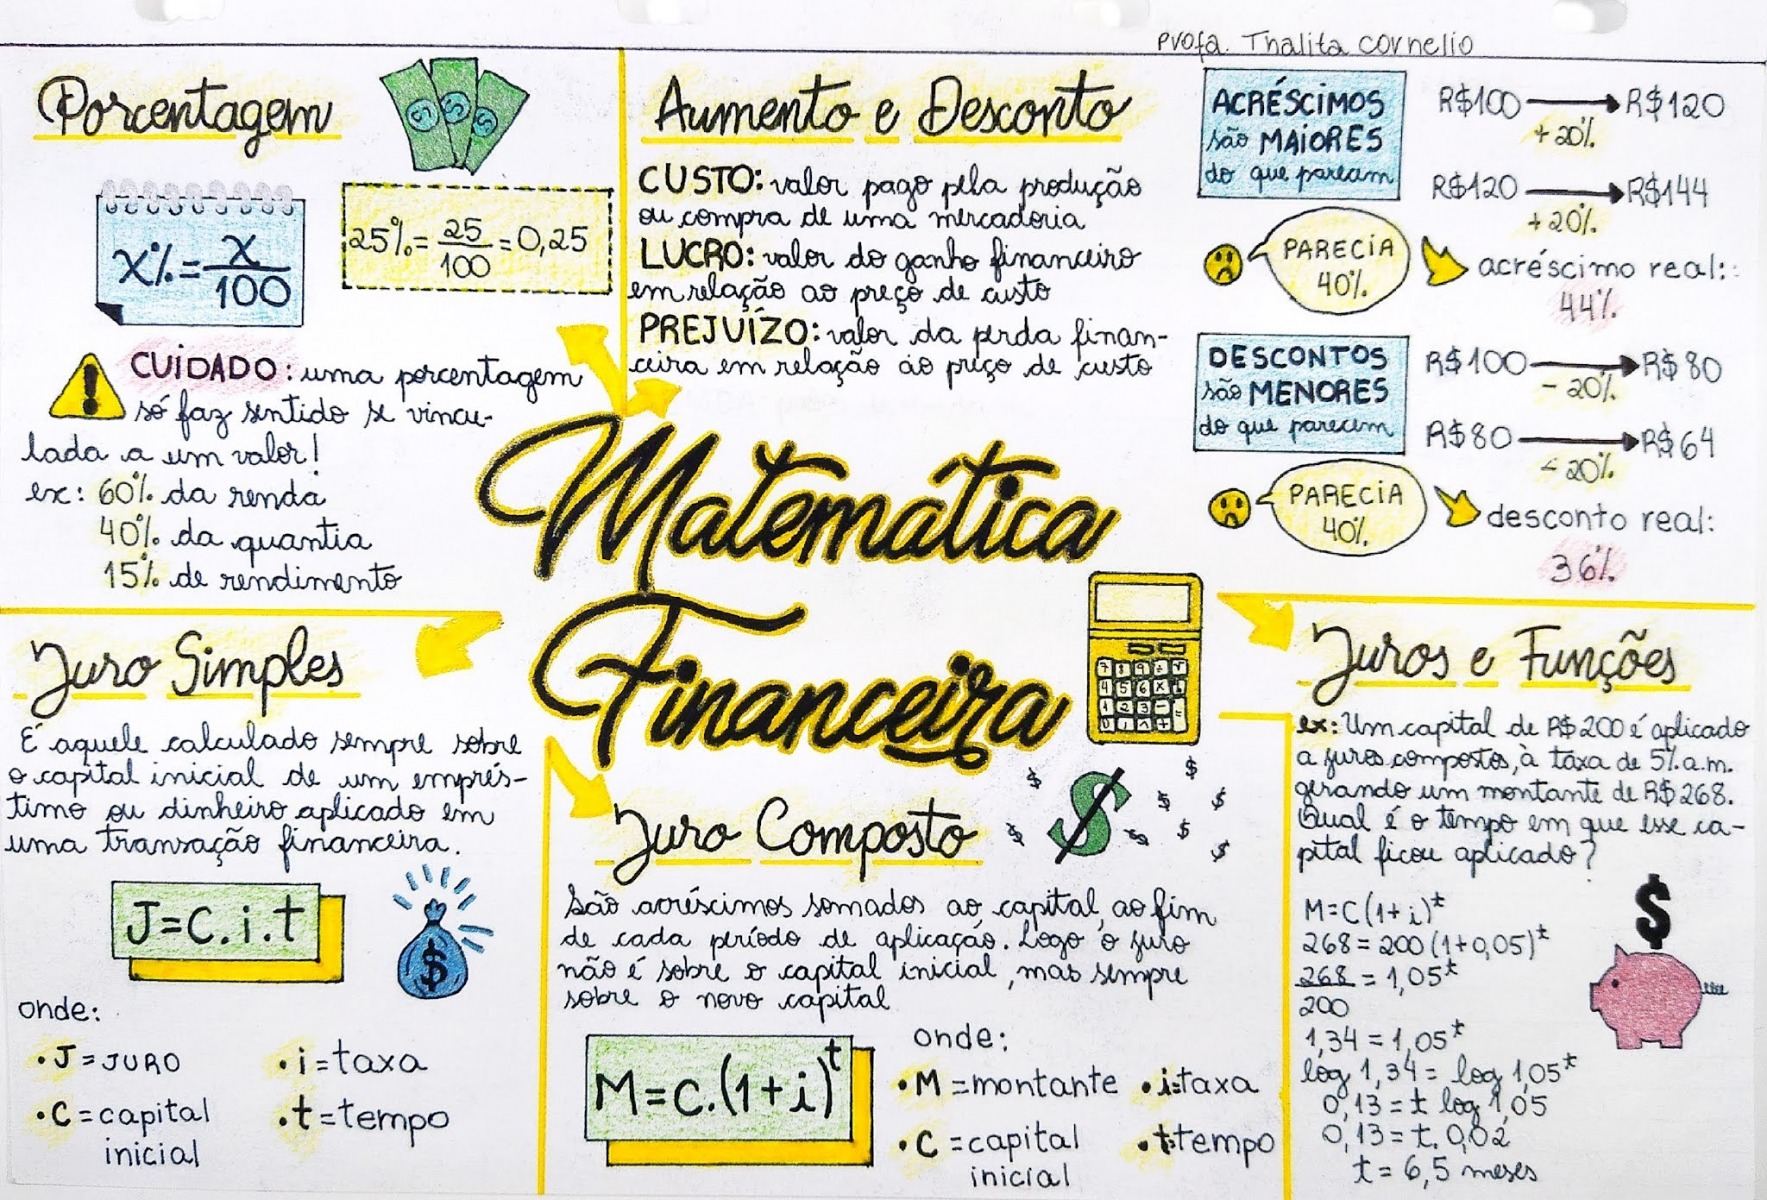 Profa. Thalita Cornelio
Porcentagem
x%=x/100
25%=25/100=0,25
CUIDADO: uma porcentagem
só faz sentido se vincu-
lada a um valor!
ex: 60% da renda
40% da quantia
15% de rendimento
Aumento e Desconto
CUSTO: valor pago pela produção
ou compra de uma mercadoria
LUCRO: valor do ganho financeiro
em relação ao preço de custo
PREJUÍZO: valor da perda finan-
ceira em relação ao preço de custo
ACRÉSCIMOS
são MAIORES
do que parecem
R$100 → R$120
+20%
R$120 → R$144
+20%
PARECIA
40%
acréscimo real:
44%
DESCONTOS
são MENORES
do que parecem
R$100 → R$80
- 20%
R$80 → R$64
- 20%
PARECIA
40%
desconto real:
36%
Matemática
Financeira
Juro Simples
É aquele calculado sempre sobre
o capital inicial de um emprés-
timo ou dinheiro aplicado em
uma transação financeira.
J=C.i.t
$
onde:
•J=JURO
•i=taxa
•C=capital
inicial
•t=tempo
Juro Composto
São acréscimos somados ao capital, ao fim
de cada período de aplicação. Logo o juro
não é sobre o capital inicial, mas sempre
sobre o novo capital
M=C.(1+i)^t
onde:
•M=montante
•i=taxa
•C=capital
inicial
•t=tempo
Juros e Funções
ex: Um capital de R$200 é aplicado
a juros compostos, à taxa de 5% a.m.
gerando um montante de R$268.
Qual é o tempo em que esse ca-
pital ficou aplicado?
M=C(1+i)^t
268=200(1+0,05)^t
268/200=1,05^t
1,34=1,05^t
log 1,34=log 1,05^t
0,13=t log 1,05
0,13=t.0,02
t=6,5 meses